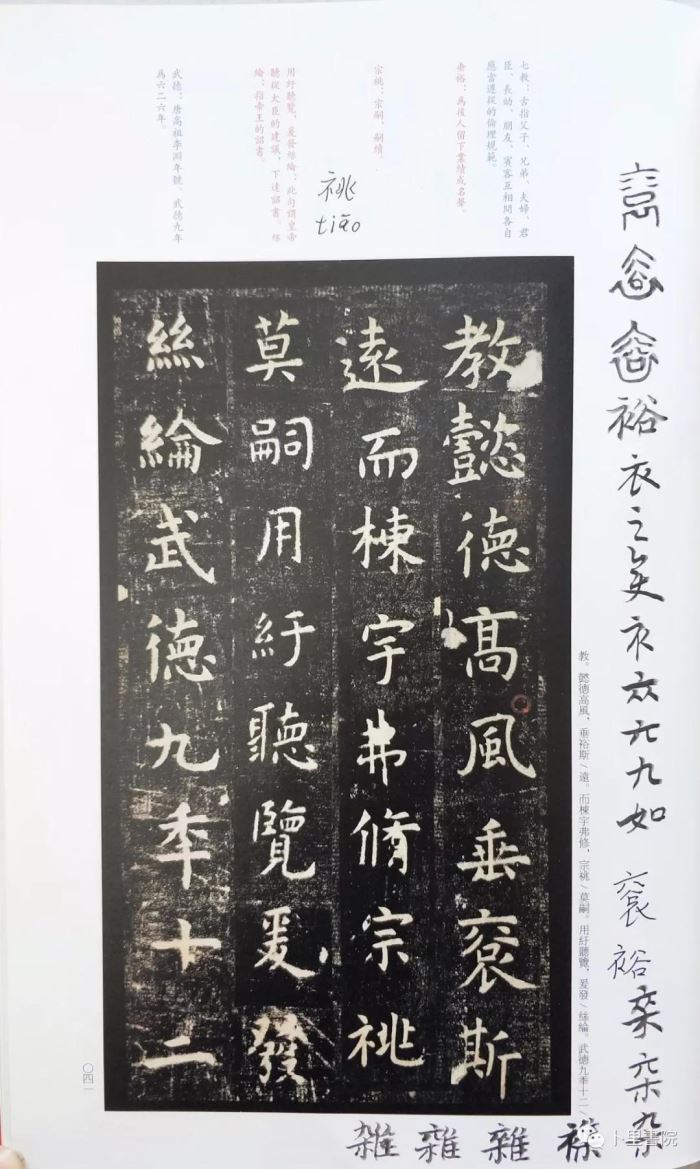 七教：古指父子、兄弟、夫婦、君
臣、長幼、朋友、賓客互相間各自
應當遵從的倫理規範。
垂裕：爲後人留下業績或名聲。
宗祧：宗嗣，嗣續。
用紆聽覽，爰發絲綸：此句謂皇帝
聽從大臣的建議，下達詔書。絲
綸：指帝王的詔書。
武德：唐高祖李淵年號，武德九年
爲六二六年。
祧
tiāo
教懿德高風垂裕斯
遠而棟宇弗脩宗祧
莫嗣用紆聽覽爰發
絲綸武德九年十二
教。懿德高風，垂裕斯/遠。而棟宇弗修，宗祧/莫嗣。用紆聽覽，爰發/絲綸。武德九季十二/
裕衣之
衣六九如
裕
雜雜
卜里書院
〇四一